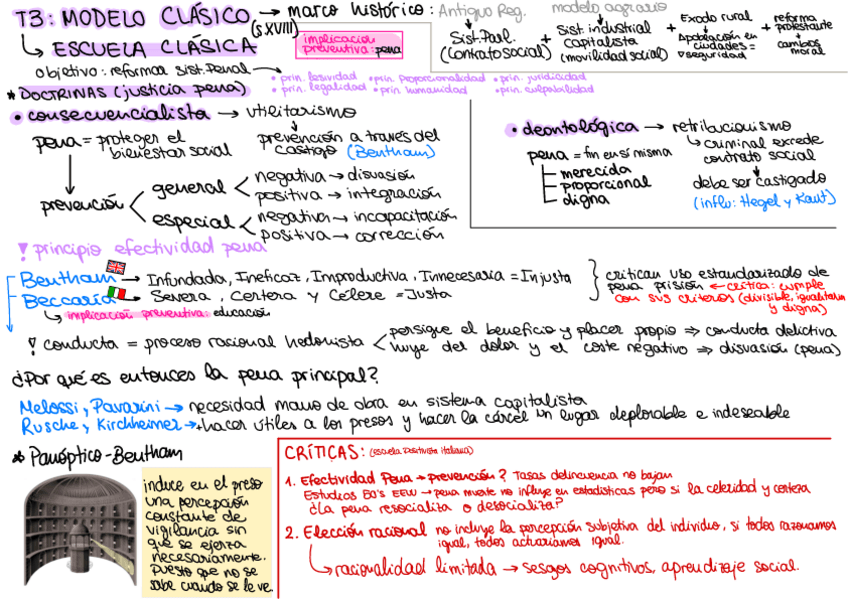 T3: MODELO CLÁSICO (s XVIII) → marco histórico: Antiguo Reg. modelo agrario
Sist. Parl. (Contrato social) + Sist. industrial capitalista (movilidad social) + Exodo rural ↓ Apoblación en ciudades = ▽seguridad + reforma protestante ↓ cambios moral
↳ ESCUELA CLÁSICA
implicación preventiva: pena
objetivo: reformar sist. Penal
• prin. lesividad • prin. proporcionalidad • prin. juridicidad
• prin. legalidad • prin. humanidad • prin. culpabilidad
* DOCTRINAS (justicia penal)
• consecuencialista → utilitarismo
pena = proteger el bienestar social
prevención a través del castigo (Bentham)
prevención
general < negativa → disuasión
positiva → integración
especial < negativa → incapacitación
positiva → corrección
• deontológica → retribucionismo
↳ criminal excede contrato social
pena = fin en sí misma
merecida
proporcional
digna
debe ser castigado
(influ: Hegel y Kant)
! principio efectividad pena
Bentham → Infundada, Ineficaz, Improductiva, Innecesaria = Injusta
Beccaria → Severa, Certera y Célere = Justa
↳ implicación preventiva: educación
critican uso estandarizado de pena prisión ← crítica: cumple con sus criterios (divisible, igualitaria y digna)
! conducta = proceso racional hedonista < persigue el beneficio y placer propio ⇒ conducta delictiva
huye del dolor y el coste negativo ⇒ disuasión (pena)
¿Por qué es entonces la pena principal?
Melossi, Pavarini → necesidad mano de obra en sistema capitalista
Rusche, Kirchheimer → +hacer útiles a los presos y hacer la cárcel un lugar deplorable e indeseable
* Panóptico - Bentham
induce en el preso
una percepción
constante de
vigilancia sin
que se ejerza
necesariamente.
puesto que no se
sabe cuando se le ve.
CRÍTICAS: (escuela Positivista italiana)
1. Efectividad Pena → prevención? Tasas delincuencia no bajan
Estudios 80's EEUU → pena muerte no influye en estadísticas pero si la celeridad y certeza
¿La pena resocializa o desocializa?
2. Elección racional no incluye la percepción subjetiva del individuo, si todos razonamos
igual, todos actuaríamos igual.
↳ racionalidad limitada → sesgos cognitivos, aprendizaje social.